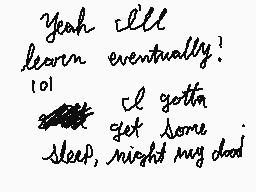 Yeah I'll
learn eventually!
lol
I gotta
get some
sleep, night my dood!